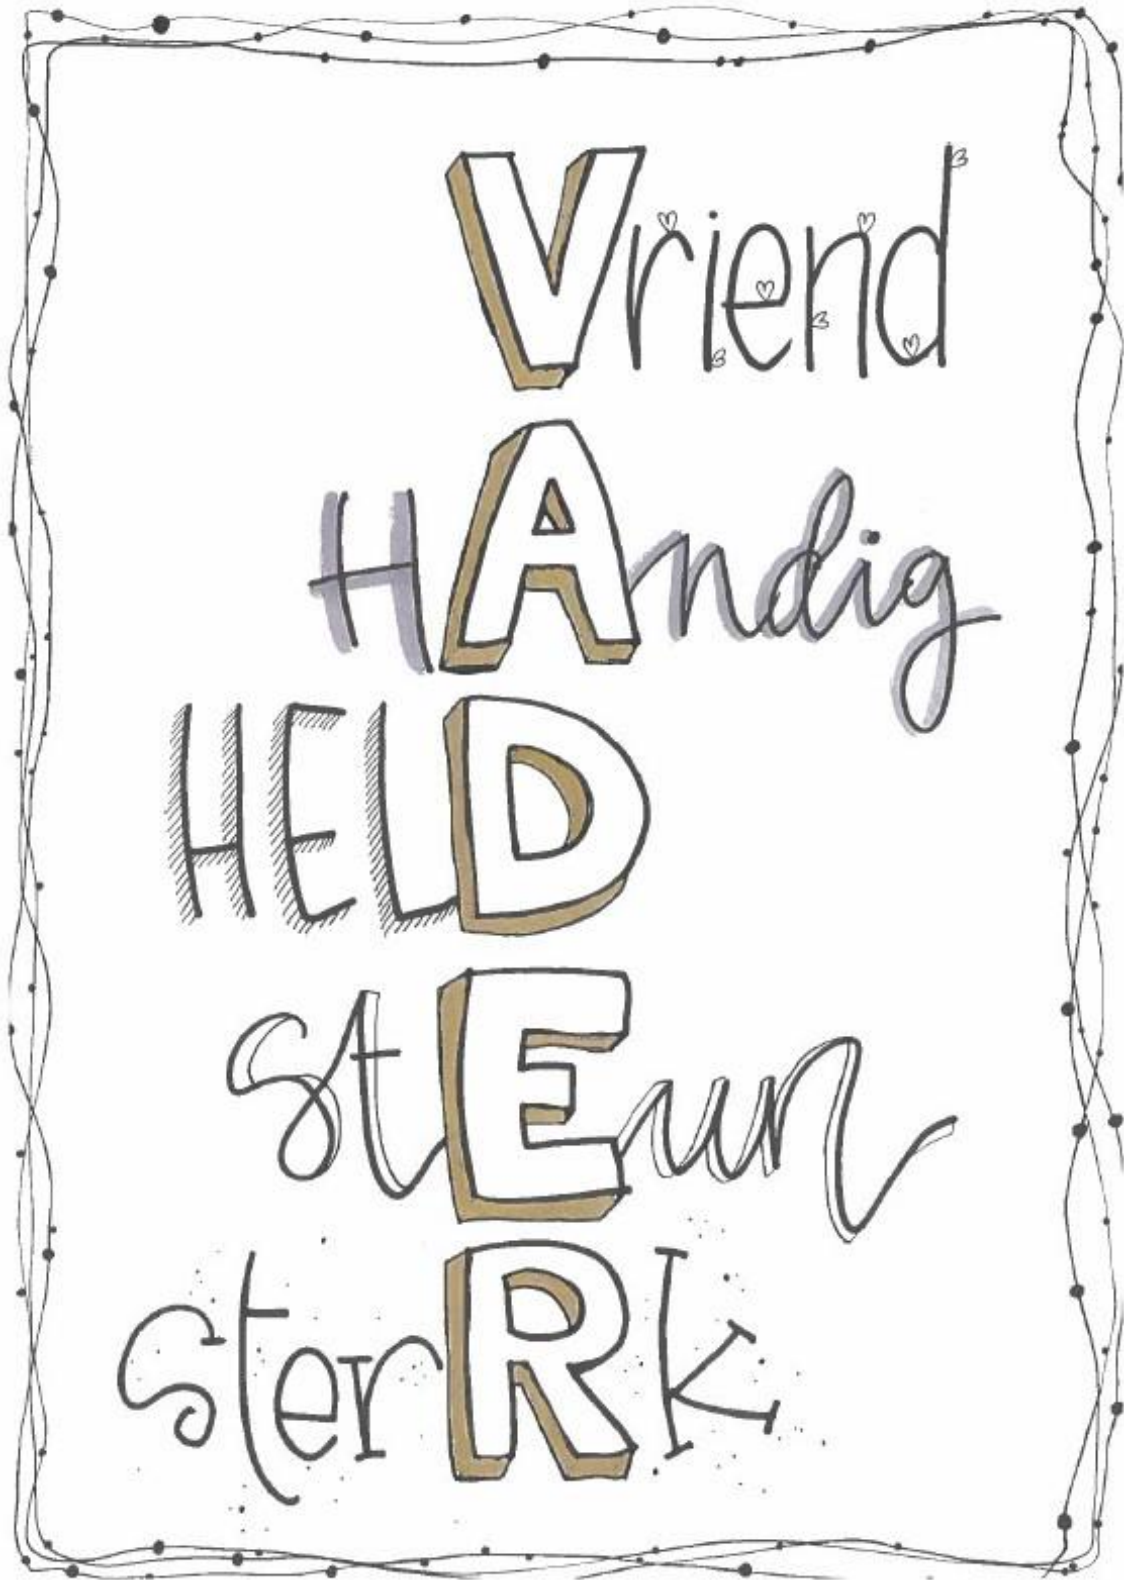 Vriend
HAndig
HELD
stEun
sterRk